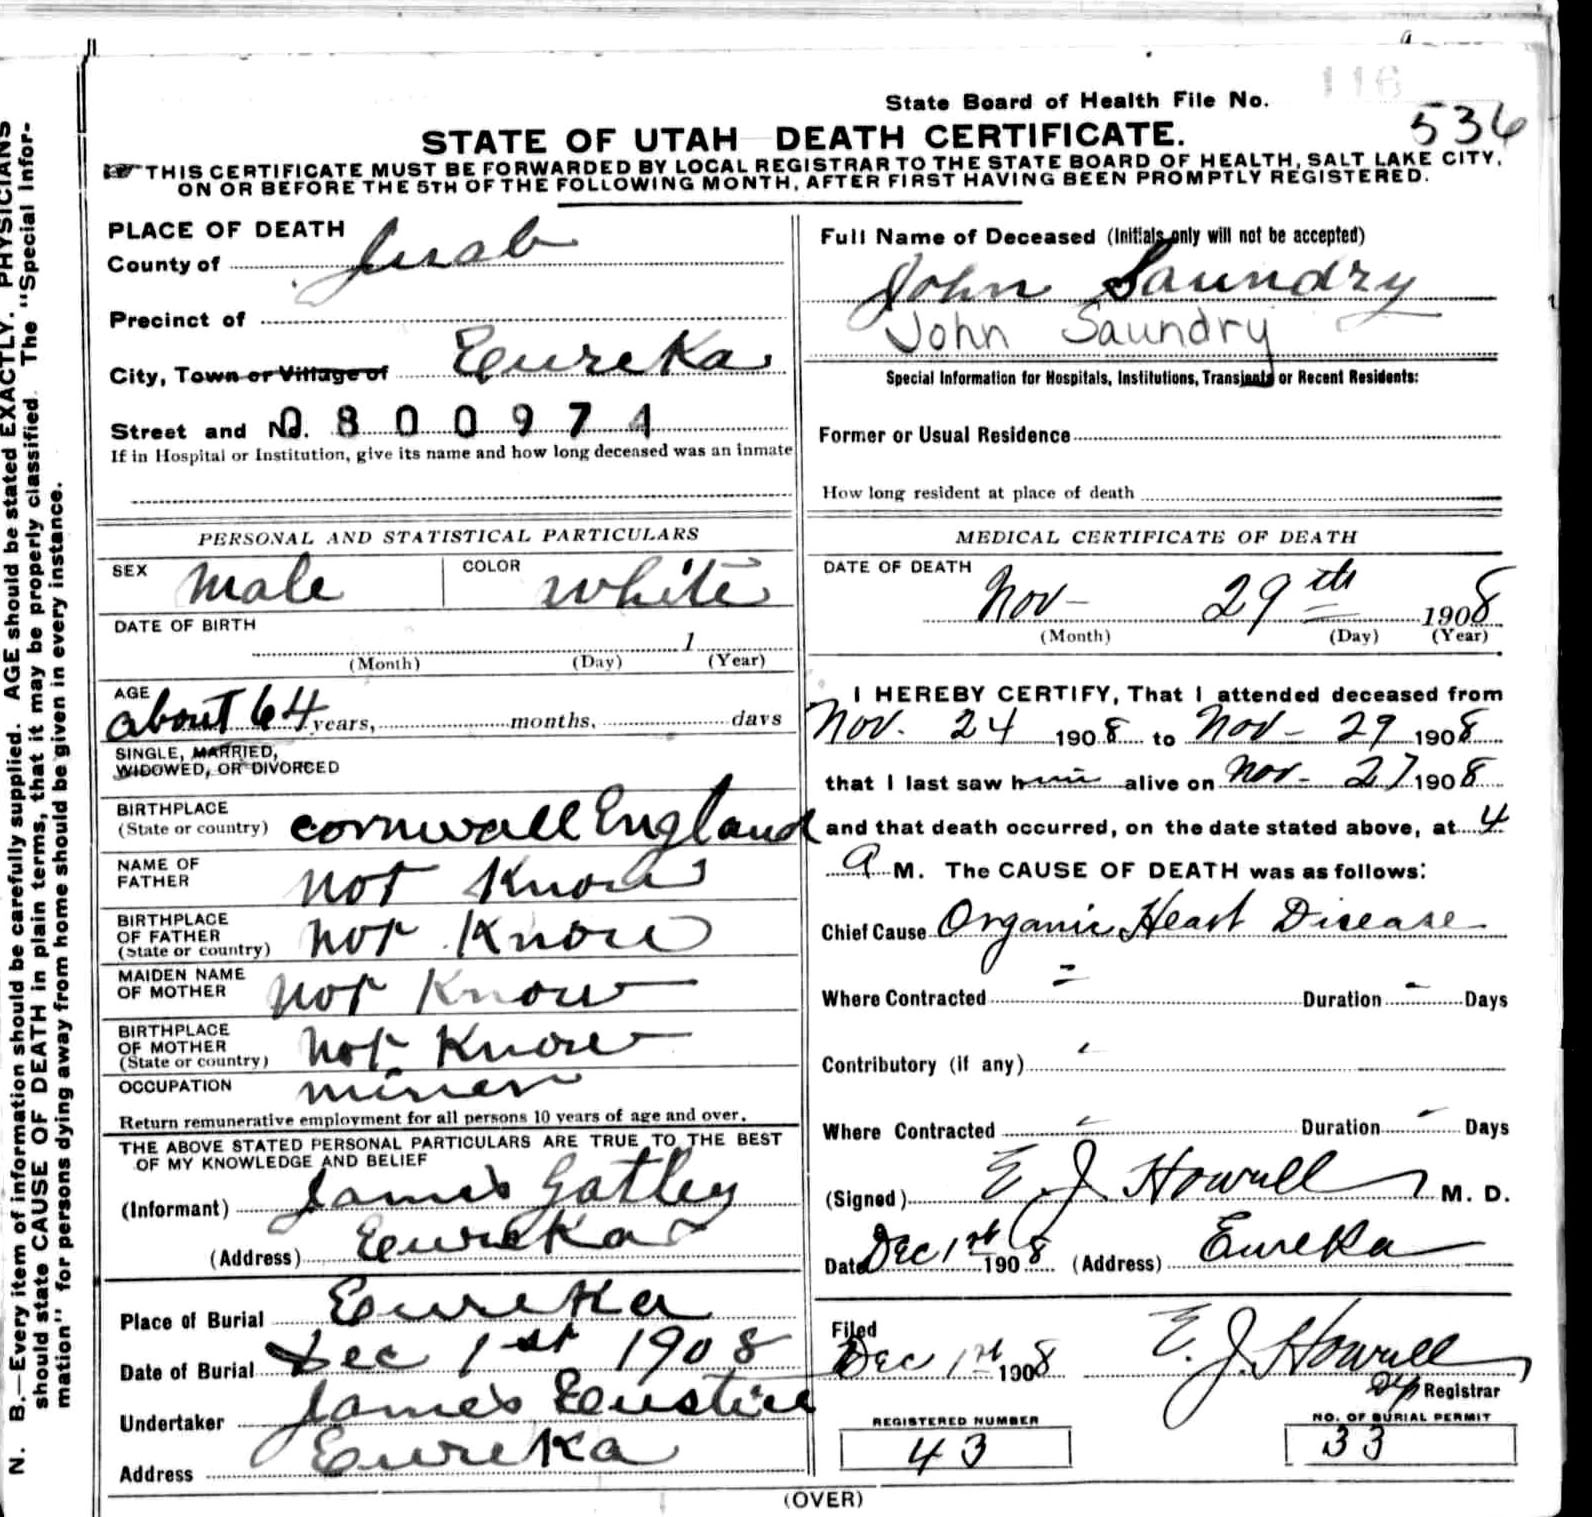 116
State Board of Health File No.
536
STATE OF UTAH DEATH CERTIFICATE.
THIS CERTIFICATE MUST BE FORWARDED BY LOCAL REGISTRAR TO THE STATE BOARD OF HEALTH, SALT LAKE CITY,
ON OR BEFORE THE 5TH OF THE FOLLOWING MONTH, AFTER FIRST HAVING BEEN PROMPTLY REGISTERED.
N. B.—Every item of information should be carefully supplied. AGE should be stated EXACTLY. PHYSICIANS
should state CAUSE OF DEATH in plain terms, that it may be properly classified. The "Special Infor-
mation" for persons dying away from home should be given in every instance.
PLACE OF DEATH
County of Juab
Precinct of
City, Town or Village of Eureka
Street and No. 0800974
If in Hospital or Institution, give its name and how long deceased was an inmate
PERSONAL AND STATISTICAL PARTICULARS
SEX Male COLOR White
DATE OF BIRTH
1
(Month) (Day) (Year)
AGE
about 64 years, months, days
SINGLE, MARRIED,
WIDOWED, OR DIVORCED
BIRTHPLACE
(State or country) Cornwall England
NAME OF
FATHER not Know
BIRTHPLACE
OF FATHER
(State or country) not Know
MAIDEN NAME
OF MOTHER not Know
BIRTHPLACE
OF MOTHER
(State or country) not Know
OCCUPATION miner
Return remunerative employment for all persons 10 years of age and over.
THE ABOVE STATED PERSONAL PARTICULARS ARE TRUE TO THE BEST
OF MY KNOWLEDGE AND BELIEF
(Informant) James Gatley
(Address) Eureka
Place of Burial Eureka
Date of Burial Dec 1st 1908
Undertaker James Eustice
Address Eureka
Full Name of Deceased (Initials only will not be accepted)
John Saundry
John Saundry
Special Information for Hospitals, Institutions, Transients or Recent Residents:
Former or Usual Residence
How long resident at place of death
MEDICAL CERTIFICATE OF DEATH
DATE OF DEATH
Nov- 29th 1908
(Month) (Day) (Year)
I HEREBY CERTIFY, That I attended deceased from
Nov. 24 1908 to Nov- 29 1908
that I last saw him alive on Nov- 27 1908
and that death occurred, on the date stated above, at 4
a M. The CAUSE OF DEATH was as follows:
Chief Cause Organic Heart Disease
Where Contracted Duration Days
Contributory (if any)
Where Contracted Duration Days
(Signed) E J Howell M. D.
Date Dec 1st 1908 (Address) Eureka
Filed
Dec 1st 1908 E. J. Howell
Dep Registrar
REGISTERED NUMBER
43
NO. OF BURIAL PERMIT
33
(OVER)